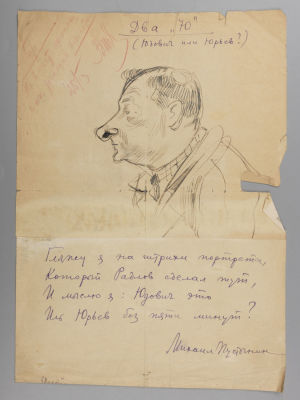 Два „70"
(Юдович или Юрьев?)
Гляжу я на штрихи портрета,
Который Радлов сделал тут,
И мыслю я: Юдович это
Иль Юрьев без пяти минут?
Михаил Пустынин